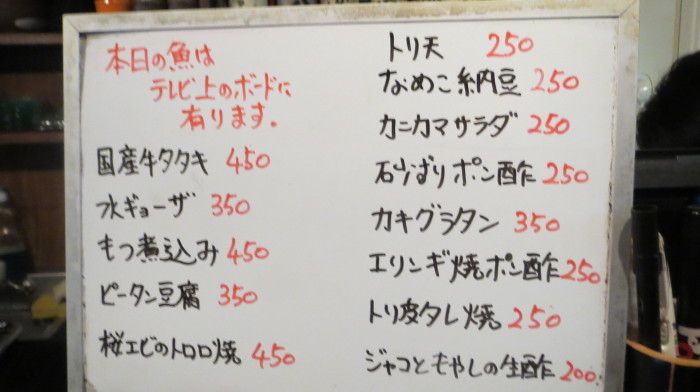 本日の魚は
テレビ上のボードに
有ります。
国産牛タタキ 450
水ギョーザ 350
もつ煮込み 450
ピータン豆腐 350
桜エビのトロロ焼 450
トリ天 250
なめこ納豆 250
カニカマサラダ 250
砂ずりポン酢 250
カキグラタン 350
エリンギ焼ポン酢 250
トリ皮タレ焼 250
ジャコともやしの生酢 200